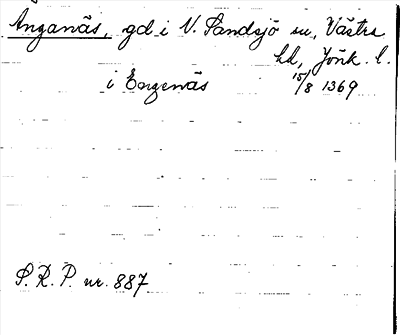 Anganäs, gd i V. Sandsjö sn, Västra
hd, Jönk. l.
i Engenäs 15/8 1369
S. R. P. nr. 887